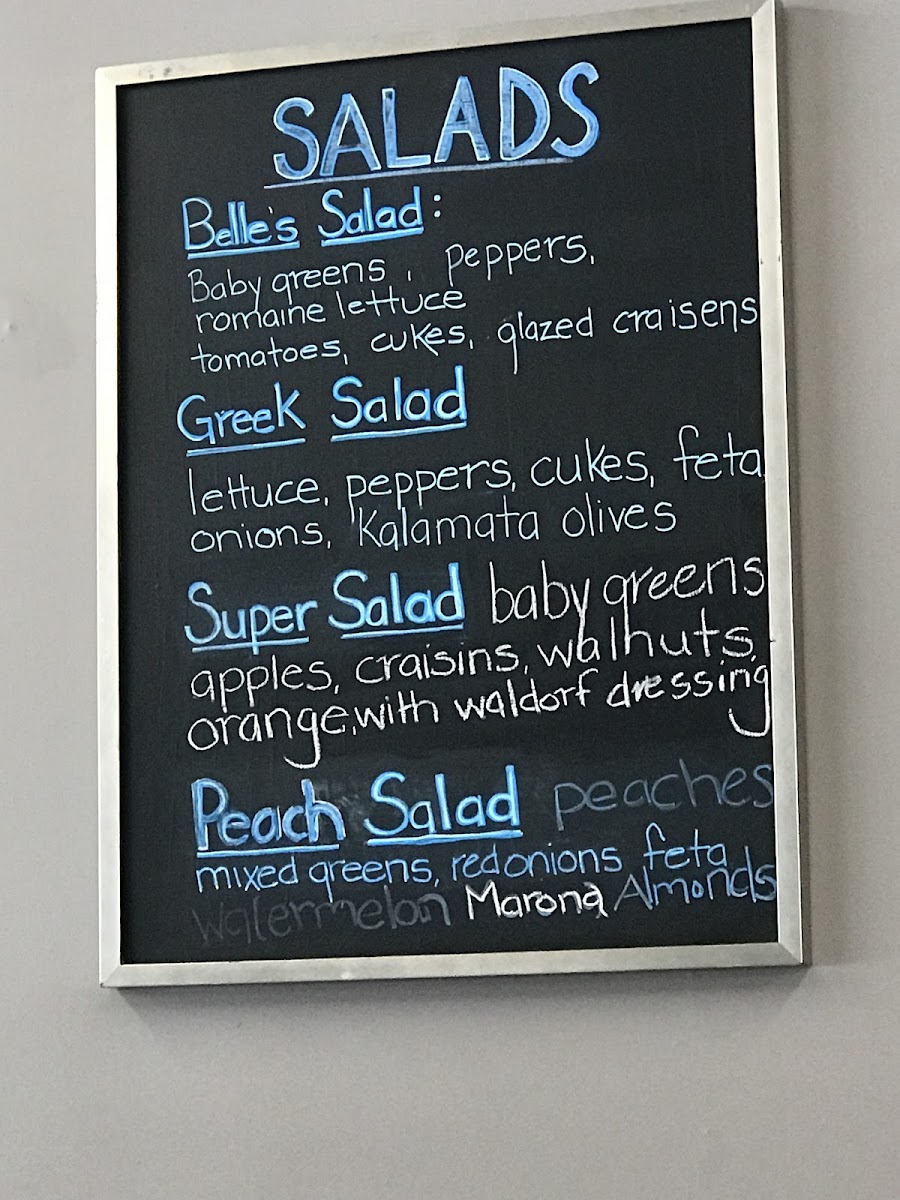 SALADS
Belle's Salad:
Baby greens, peppers,
romaine lettuce
tomatoes, cukes, glazed craisens
Greek Salad
lettuce, peppers, cukes, feta
onions, Kalamata olives
Super Salad baby greens
apples, craisins, walnuts,
orange, with waldorf dressing
Peach Salad peaches
mixed greens, red onions feta
watermelon Marona Almonds